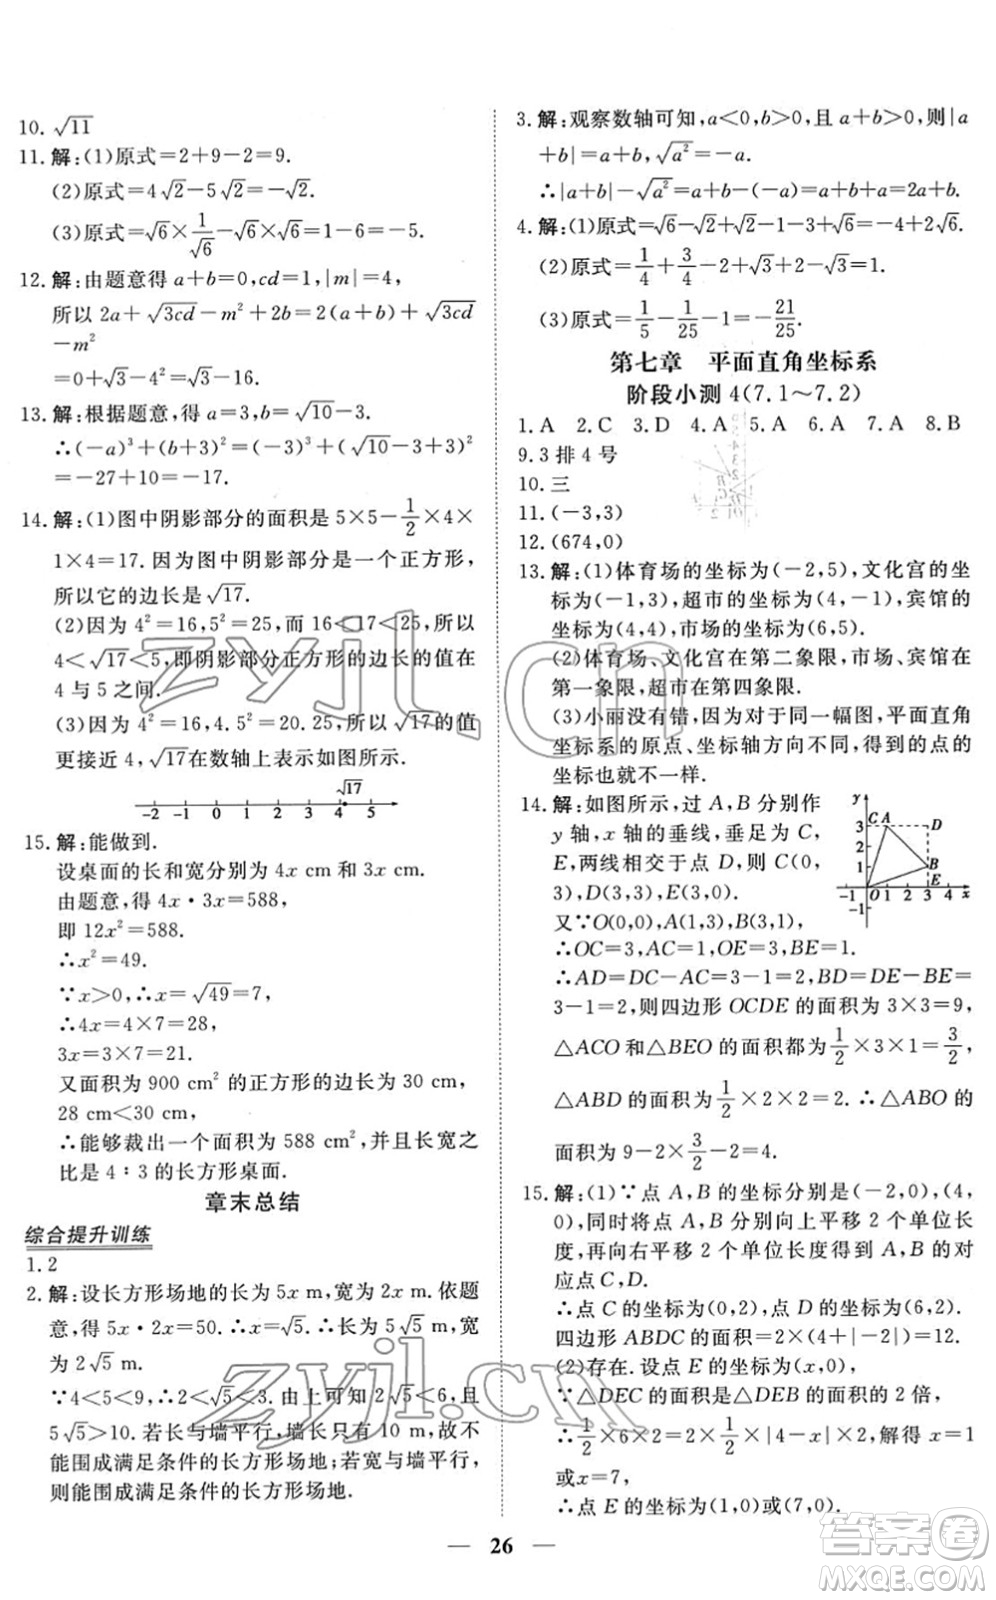 10. √11
11. 解:(1)原式=2+9-2=9.
(2)原式=4√2-5√2=-√2.
(3)原式=√6×1/√6-√6×√6=1-6=-5.
12. 解:由题意得 a+b=0,cd=1,|m|=4,
所以 2a+√3cd-m²+2b=2(a+b)+√3cd
-m²
=0+√3-4²=√3-16.
13. 解:根据题意,得 a=3,b=√10-3.
∴(-a)³+(b+3)²=(-3)³+(√10-3+3)²
=-27+10=-17.
14. 解:(1)图中阴影部分的面积是 5×5-1/2×4×
1×4=17. 因为图中阴影部分是一个正方形,
所以它的边长是 √17.
(2)因为 4²=16,5²=25,而 16<17<25,所以
4<√17<5,即阴影部分正方形的边长的值在
4 与 5 之间.
(3)因为 4²=16,4.5²=20.25,所以√17的值
更接近 4,√17在数轴上表示如图所示.
√17
-2 -1 0 1 2 3 4 5
15. 解:能做到.
设桌面的长和宽分别为 4x cm 和 3x cm.
由题意,得 4x·3x=588,
即 12x²=588.
∴x²=49.
∵x>0,∴x=√49=7,
∴4x=4×7=28,
3x=3×7=21.
又面积为 900 cm² 的正方形的边长为 30 cm,
28 cm<30 cm,
∴能够裁出一个面积为 588 cm²,并且长宽之
比是 4∶3 的长方形桌面.
章末总结
综合提升训练
1. 2
2. 解:设长方形场地的长为 5x m,宽为 2x m. 依题
意,得 5x·2x=50.∴x=√5.∴长为 5√5 m,宽
为 2√5 m.
∵4<5<9,∴2<√5<3. 由上可知 2√5<6,且
5√5>10. 若长与墙平行,墙长只有 10 m,故不
能围成满足条件的长方形场地;若宽与墙平行,
则能围成满足条件的长方形场地.
3. 解:观察数轴可知,a<0,b>0,且 a+b>0,则|a
+b|=a+b,√a²=-a.
∴|a+b|-√a²=a+b-(-a)=a+b+a=2a+b.
4. 解:(1)原式=√6-√2+√2-1-3+√6=-4+2√6.
(2)原式=1/4+3/4-2+√3+2-√3=1.
(3)原式=1/5-1/25-1=-21/25.
第七章 平面直角坐标系
阶段小测 4(7.1~7.2)
1. A 2. C 3. D 4. A 5. A 6. A 7. A 8. B
9. 3 排 4 号
10. 三
11. (-3,3)
12. (674,0)
13. 解:(1)体育场的坐标为(-2,5),文化宫的坐
标为(-1,3),超市的坐标为(4,-1),宾馆的
坐标为(4,4),市场的坐标为(6,5).
(2)体育场、文化宫在第二象限,市场、宾馆在
第一象限,超市在第四象限.
(3)小丽没有错,因为对于同一幅图,平面直角
坐标系的原点、坐标轴方向不同,得到的点的
坐标也就不一样.
14. 解:如图所示,过 A,B 分别作
y 轴,x 轴的垂线,垂足为 C,
E,两线相交于点 D,则 C(0,
3),D(3,3),E(3,0).
y
3 C A D
2
1 B
E
-1 O 1 2 3 4 x
-1
又∵O(0,0),A(1,3),B(3,1),
∴OC=3,AC=1,OE=3,BE=1.
∴AD=DC-AC=3-1=2,BD=DE-BE=
3-1=2,则四边形 OCDE 的面积为 3×3=9,
△ACO和△BEO 的面积都为1/2×3×1=3/2,
△ABD 的面积为1/2×2×2=2.∴△ABO 的
面积为 9-2×3/2-2=4.
15. 解:(1)∵点 A,B 的坐标分别是(-2,0),(4,
0),同时将点 A,B 分别向上平移 2 个单位长
度,再向右平移 2 个单位长度,得到 A,B 的对
应点 C,D.
∴点 C 的坐标为(0,2),点 D 的坐标为(6,2).
四边形 ABDC 的面积=2×(4+|-2|)=12.
(2)存在. 设点 E 的坐标为(x,0),
∵△DEC 的面积是△DEB 的面积的 2 倍,
∴1/2×6×2=2×1/2×|4-x|×2,解得 x=1
或x=7,
∴点 E 的坐标为(1,0)或(7,0).
— 26 —
zyjl.cn
zyjl.cn
答案卷
MXQE.COM